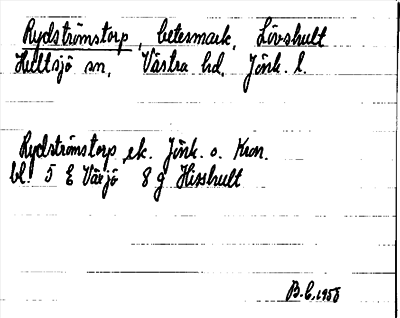 Rydströmstorp, betesmark, Lövshult
Hultsjö sn, Västra hd, Jönk. l.
Rydströmstorp, ek. Jönk. o. Kron.
bl. 5 E Växjö 8 g Hisshult
B.C. 1958